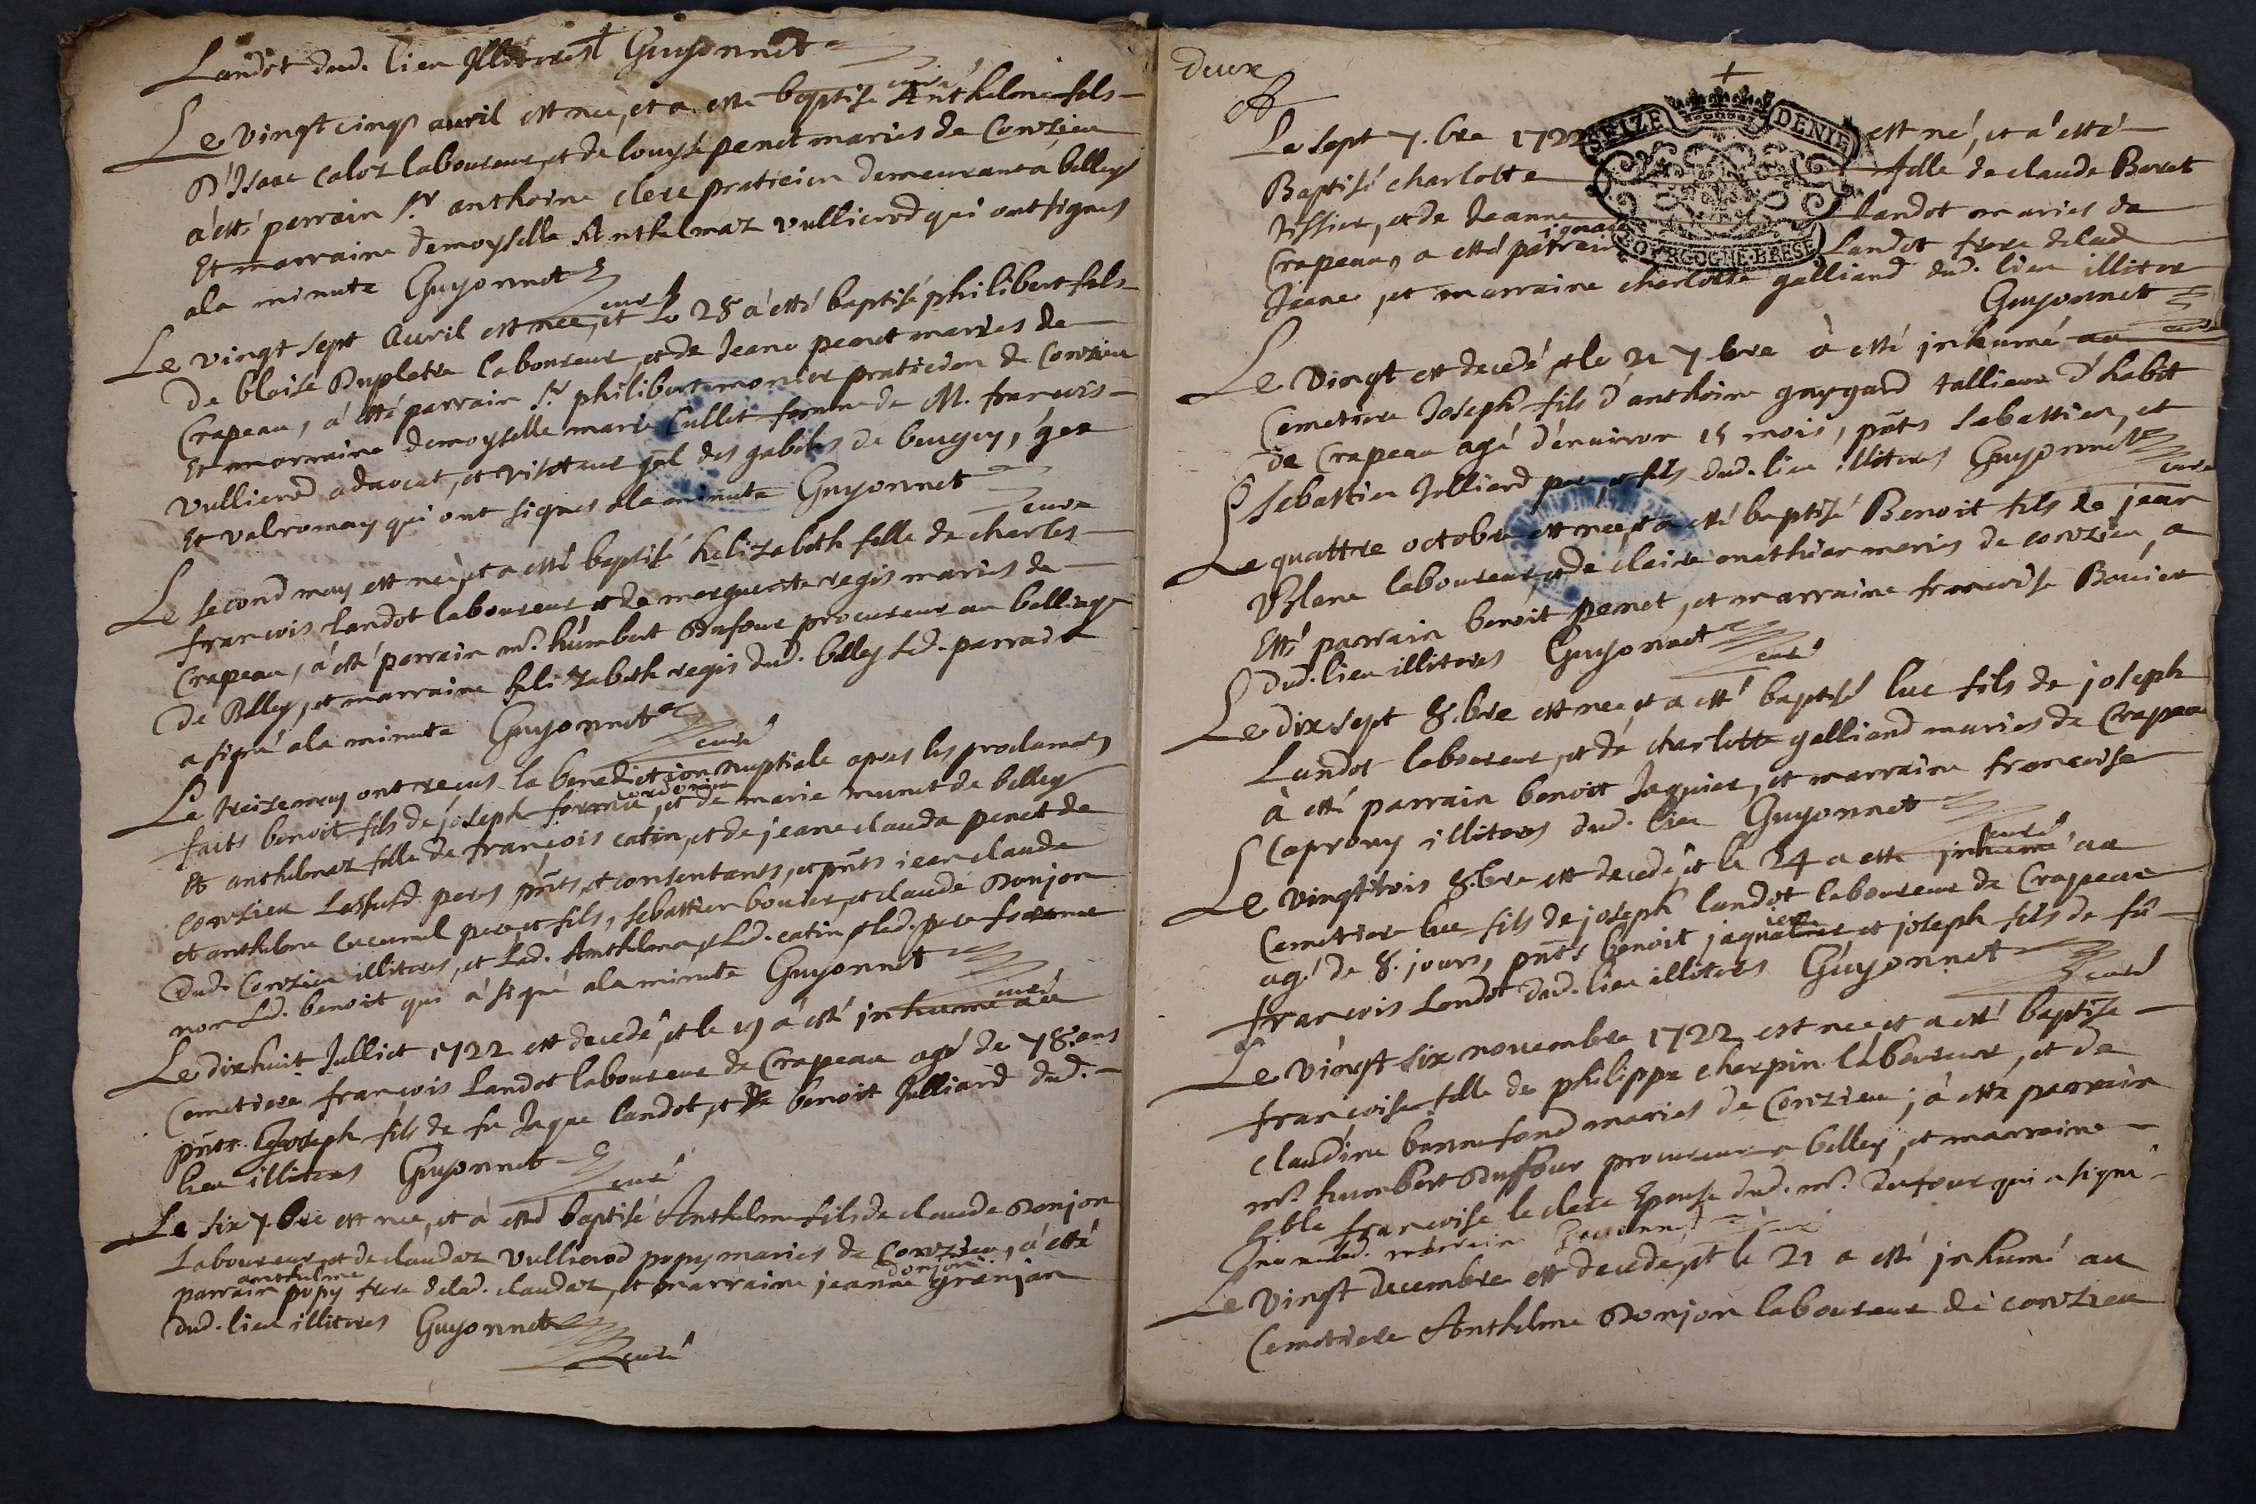 Landot dud. lieu Illiteres Guyonnet
curé
Le vingt cinq avril est neé, et a esté baptisé Anthelme fils
D'Isaac caloz laboureur, et de louyse penet mariés de Conzieu
a'esté parrain Sr. anthoine clere praticien demeurant à belley
Et marraine demoyselle Anthelmaz vullierod qui ont signés
ala minute Guyonnet
curé
Le vingt sept avril est neé, et le 28 a'esté baptisé philibert fils
De blaise Dupletre laboureur, et de Jeane penet mariés de
Crapeau, a'esté parrain Sr. philibert monier praticien de Conzieu
Et marraine demoyselle marie Cullet femme de M. francois
vullierod advocat, et visiteur gñl des gabeles de beugey, gex
Et valromay qui ont signés ala minute Guyonnet
curé
Le second may est neé, et a esté baptisé helizabeth fille de charles
francois Landot laboureur et de marguerite regis mariés de
Crapeau, a'esté parrain mr. humbert Dufour procureur au balliage
De Belley, et marraine helizabeth regis dud. belley led. parrain
a signé ala minute Guyonnet
curé
Le treize may ont receus la benediction nuptiale apres les proclamaõs
faits benoit fils de joseph forme cordonier, et de marie munet de belley
Et anthelmez fille de françois catin, et de jeane clauda penet de
conzieu Lessusd. peres pñts, et consentants, et pñts jean claude
et anthelme cucumel pere, et fils, sebastien bouier, et claude Donjon
Dud. Conzieu illiteres, et Lad. Anthelmaz et Led. catin et led. pere forme
non Led. benoit qui a'signé ala minute Guyonnet
curé
Le dixhuit Julliet 1722 est decedé, et le 19 a'esté inhumé au
Cemetiere françois Landot laboureur de Crapeau agé de 78. ans
pñts Joseph fils de fu Jaque landot, et de benoit Julliard dud.
lieu illiteres Guyonnet
curé
Le six 7.bre est neé, et a'esté baptisé Anthelme fils de claude Donjon
Laboureur, et de claudaz Vullierod popy mariés de Conzieu, a'esté
parrain anthelme popy frere delad. claudaz, et marraine jeanne donjon granjan
dud. lieu illiteres Guyonnet
curé
Deux
Le sept 7.bre 1722 est né, et a'esté
Baptisé charlotte fille de claude Boret
tissier, et de Jeanne Landot mariés de
Crapeau, a esté parrain ignace Landot frere delad
Jeane, et marraine charlotte galliand dud. lieu illiter
Guyonnet
curé
SEIZE DENIE
BOURGOGNE-BRESE
Le vingt est decedé, et le 21 7.bre a esté inhumé au
Cemetiere Joseph fils d'anthoine gaygard tallieur d'habit
de Crapeau agé d'environ 15 mois, pñts Sebastien, et
Sebastien Julliard pere, et fils dud. lieu illiteres Guyonnet
curé
Le quattre octobre est neé, et a esté baptisé Benoit fils de jean
Blanc laboureur, et de claire mathieu mariés de conzieu, a
Esté parrain benoit penet, et marraine francoise Bouier
Dud. lieu illiteres Guyonnet
curé
Le dix sept 8.bre est neé, et a esté baptisé luc fils de joseph
Landot laboureur, et de charlotte galliand mariés de Crapeau
à esté parrain benoit Jaquier, et marraine francoise
Caprony illiteres dud. lieu Guyonnet
curé
Le vingt trois 8.bre est decedé, et le 24 a esté inhumé au
Cemetiere luc fils de joseph landot laboureur de Crapeau
agé de 8. jours, pñts benoit jaquier et joseph fils de fû
françois Landot dud. lieu illiteres Guyonnet
curé
Le vingt six novembre 1722 est neé et a esté baptisé
francoise fille de philippe charpin laboureur, et de
claudine bonnefond mariés de Conzieu; a'esté parrain
mr. humbert Duffour procureur a belley, et marraine
francoise le clerc Epouse dud. mr. dufour qui a signé
non lad. marraine Guyonnet curé
Le vingt decembre est decedé, et le 21 a esté inhumé au
Cemetiere Anthelme Donjon laboureur de conzieu